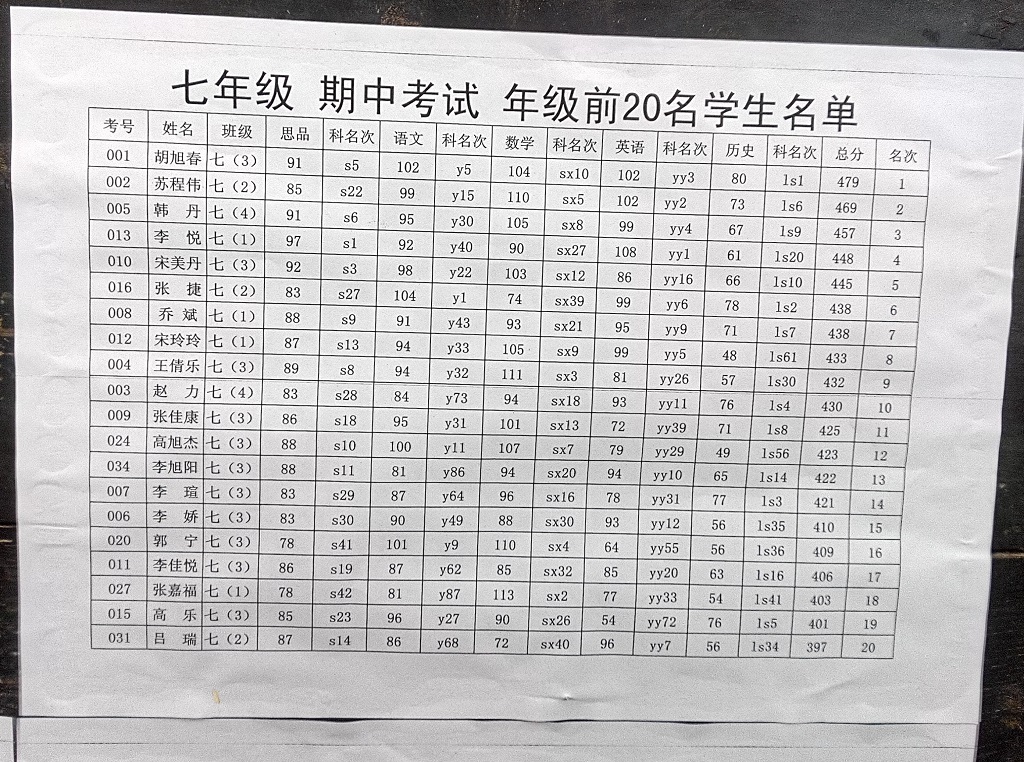 七年级 期中考试 年级前20名学生名单
考号 姓名 班级 思品 科名次 语文 科名次 数学 科名次 英语 科名次 历史 科名次 总分 名次
001 胡旭春 七（3） 91 s5 102 y5 104 sx10 102 yy3 80 ls1 479 1
002 苏程伟 七（2） 85 s22 99 y15 110 sx5 102 yy2 73 ls6 469 2
005 韩 丹 七（4） 91 s6 95 y30 105 sx8 99 yy4 67 ls9 457 3
013 李 悦 七（1） 97 s1 92 y40 90 sx27 108 yy1 61 ls20 448 4
010 宋美丹 七（3） 92 s3 98 y22 103 sx12 86 yy16 66 ls10 445 5
016 张 捷 七（2） 83 s27 104 y1 74 sx39 99 yy6 78 ls2 438 6
008 乔 斌 七（1） 88 s9 91 y43 93 sx21 95 yy9 71 ls7 438 7
012 宋玲玲 七（1） 87 s13 94 y33 105 sx9 99 yy5 48 ls61 433 8
004 王倩乐 七（3） 89 s8 94 y32 111 sx3 81 yy26 57 ls30 432 9
003 赵 力 七（4） 83 s28 84 y73 94 sx18 93 yy11 76 ls4 430 10
009 张佳康 七（3） 86 s18 95 y31 101 sx13 72 yy39 71 ls8 425 11
024 高旭杰 七（3） 88 s10 100 y11 107 sx7 79 yy29 49 ls56 423 12
034 李旭阳 七（3） 88 s11 81 y86 94 sx20 94 yy10 65 ls14 422 13
007 李 瑄 七（3） 83 s29 87 y64 96 sx16 78 yy31 77 ls3 421 14
006 李 娇 七（3） 83 s30 90 y49 88 sx30 93 yy12 56 ls35 410 15
020 郭 宁 七（3） 78 s41 101 y9 110 sx4 64 yy55 56 ls36 409 16
011 李佳悦 七（3） 86 s19 87 y62 85 sx32 85 yy20 63 ls16 406 17
027 张嘉福 七（1） 78 s42 81 y87 113 sx2 77 yy33 54 ls41 403 18
015 高 乐 七（3） 85 s23 96 y27 90 sx26 54 yy72 76 ls5 401 19
031 吕 瑞 七（2） 87 s14 86 y68 72 sx40 96 yy7 56 ls34 397 20